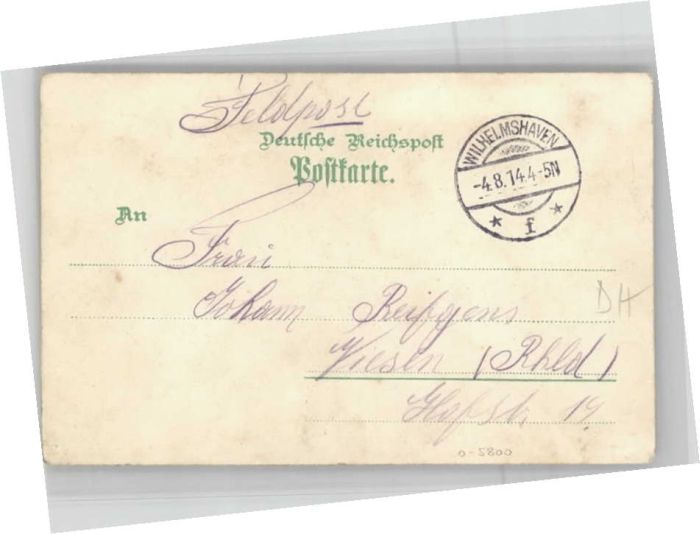 Feldpost
Deutsche Reichspost
Postkarte.
WILHELMSHAVEN
-4.8.14.4-5N
* f *
An
Frau
Johann Reifgens
(Rhld)
14
DH
0-5800